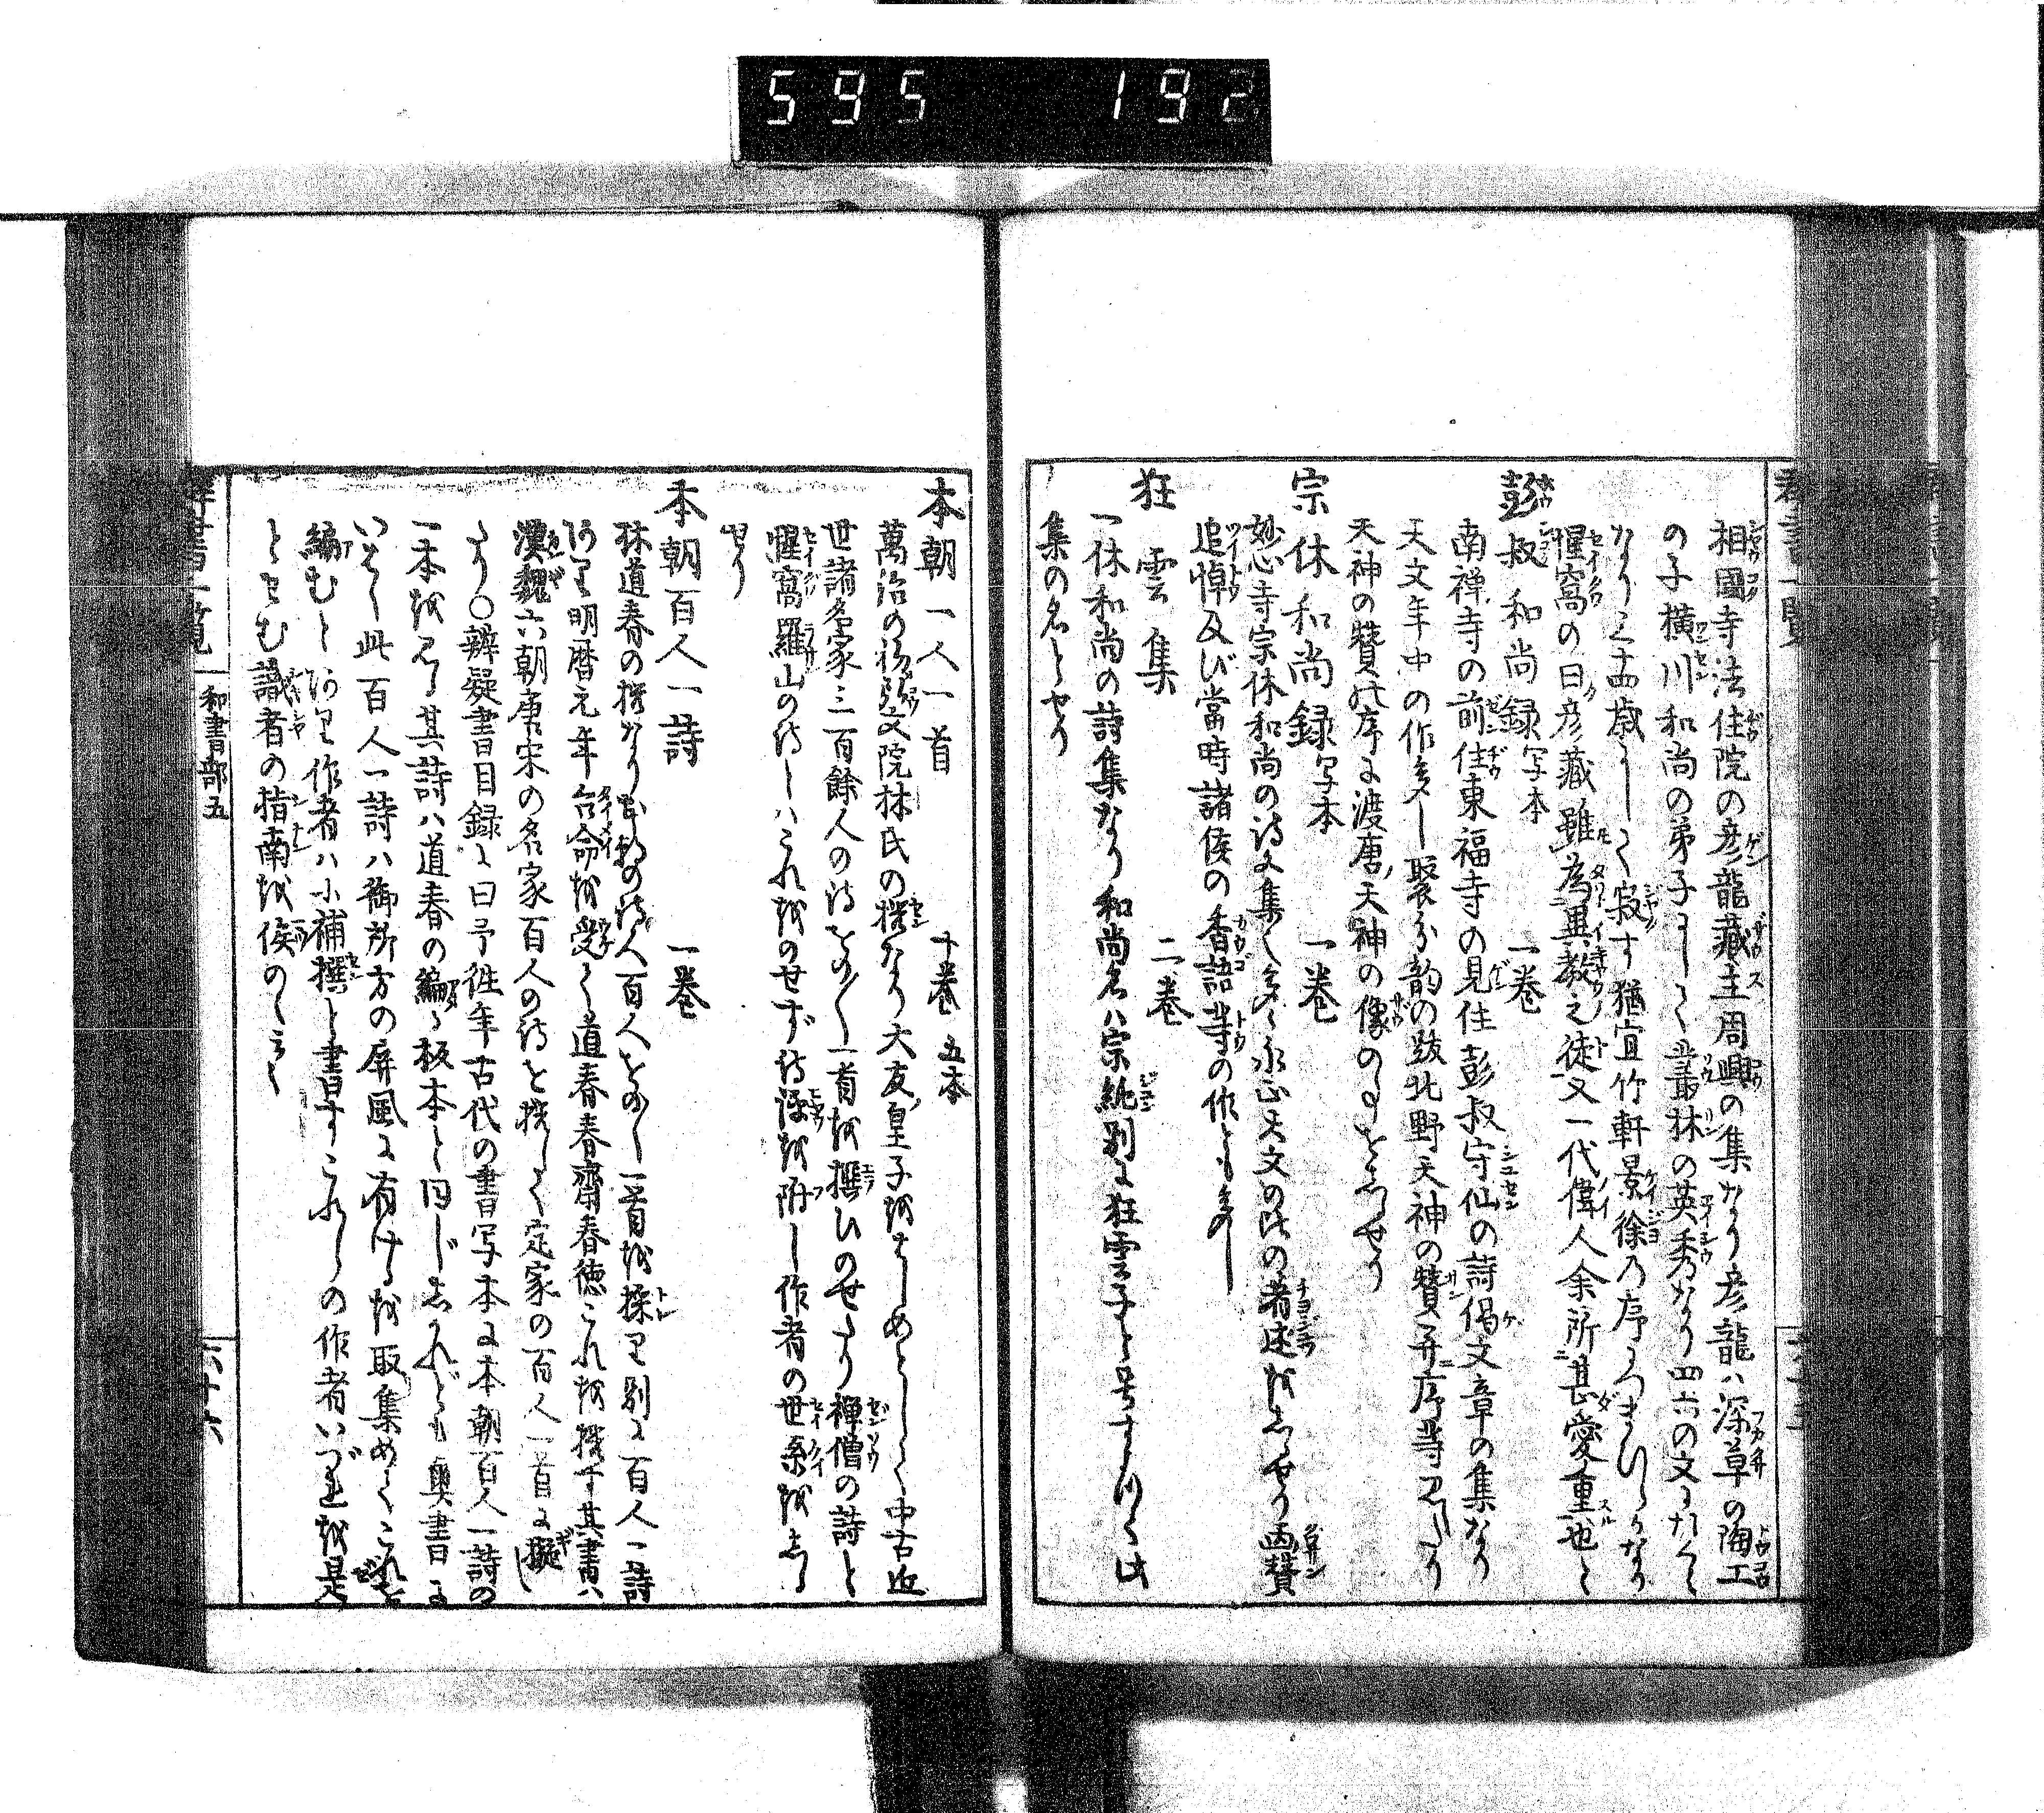 595 192
相國寺法住院の彦龍藏主周興の集なり彦龍ハ深草の陶工
の子横川和尚の弟子にして叢林の英秀なり四六の文にたくミ
なり三十四歳にして寂す猶宜竹軒景徐の序につまびらかなり
惺窩の曰彦藏雖為異教之徒又一代偉人余所甚愛重也と
彭叔和尚録写本 一巻
南禅寺の前住東福寺の見住彭叔守仙の詩偈文章の集なり
天文年中の作多し聚分韵の跋北野天神の賛并序等見へたり
天神の賛の序に渡唐天神の像の事をしるせり
宗休和尚録写本 一巻
妙心寺宗休和尚の詩文集也多く永正天文の比の著述をしるせり画賛
追悼及び當時諸侯の香語等の作とも多し
狂雲集 二巻
一休和尚の詩集なり和尚名ハ宗純別に狂雲子と号すよつて此
集の名とせり
本朝一人一首 十巻 五本
萬治の初弘文院林氏の撰なり大友皇子をはじめとして中古近
世諸名家三百餘人の詩をの〱一首を撰ひのせたり禅僧の詩と
惺窩羅山の詩とハこれをのせず詩評を附し作者の世系をしる
せり
本朝百人一詩 一巻
林道春の撰なり本朝の詩人百人をの〱一首を採り別に百人一詩
あり明暦元年台命を受て道春春齋春徳これを撰す其書ハ
漢魏六朝唐宋の名家百人の詩を撰して定家の百人一首に擬し
たり○辨疑書目録に曰予徃年古代の書写本に本朝百人一詩の
一本を見る其詩ハ道春の編る板本と同じしかれども奥書に
いはく此百人一詩ハ御所方の屏風に有ける を取集めてこれを
編むとあり作者ハ小補撰と書すこれらの作者いづれを是
とせむ識者の指南を俟のミと云〻
群書一覧 和書部五 六十六